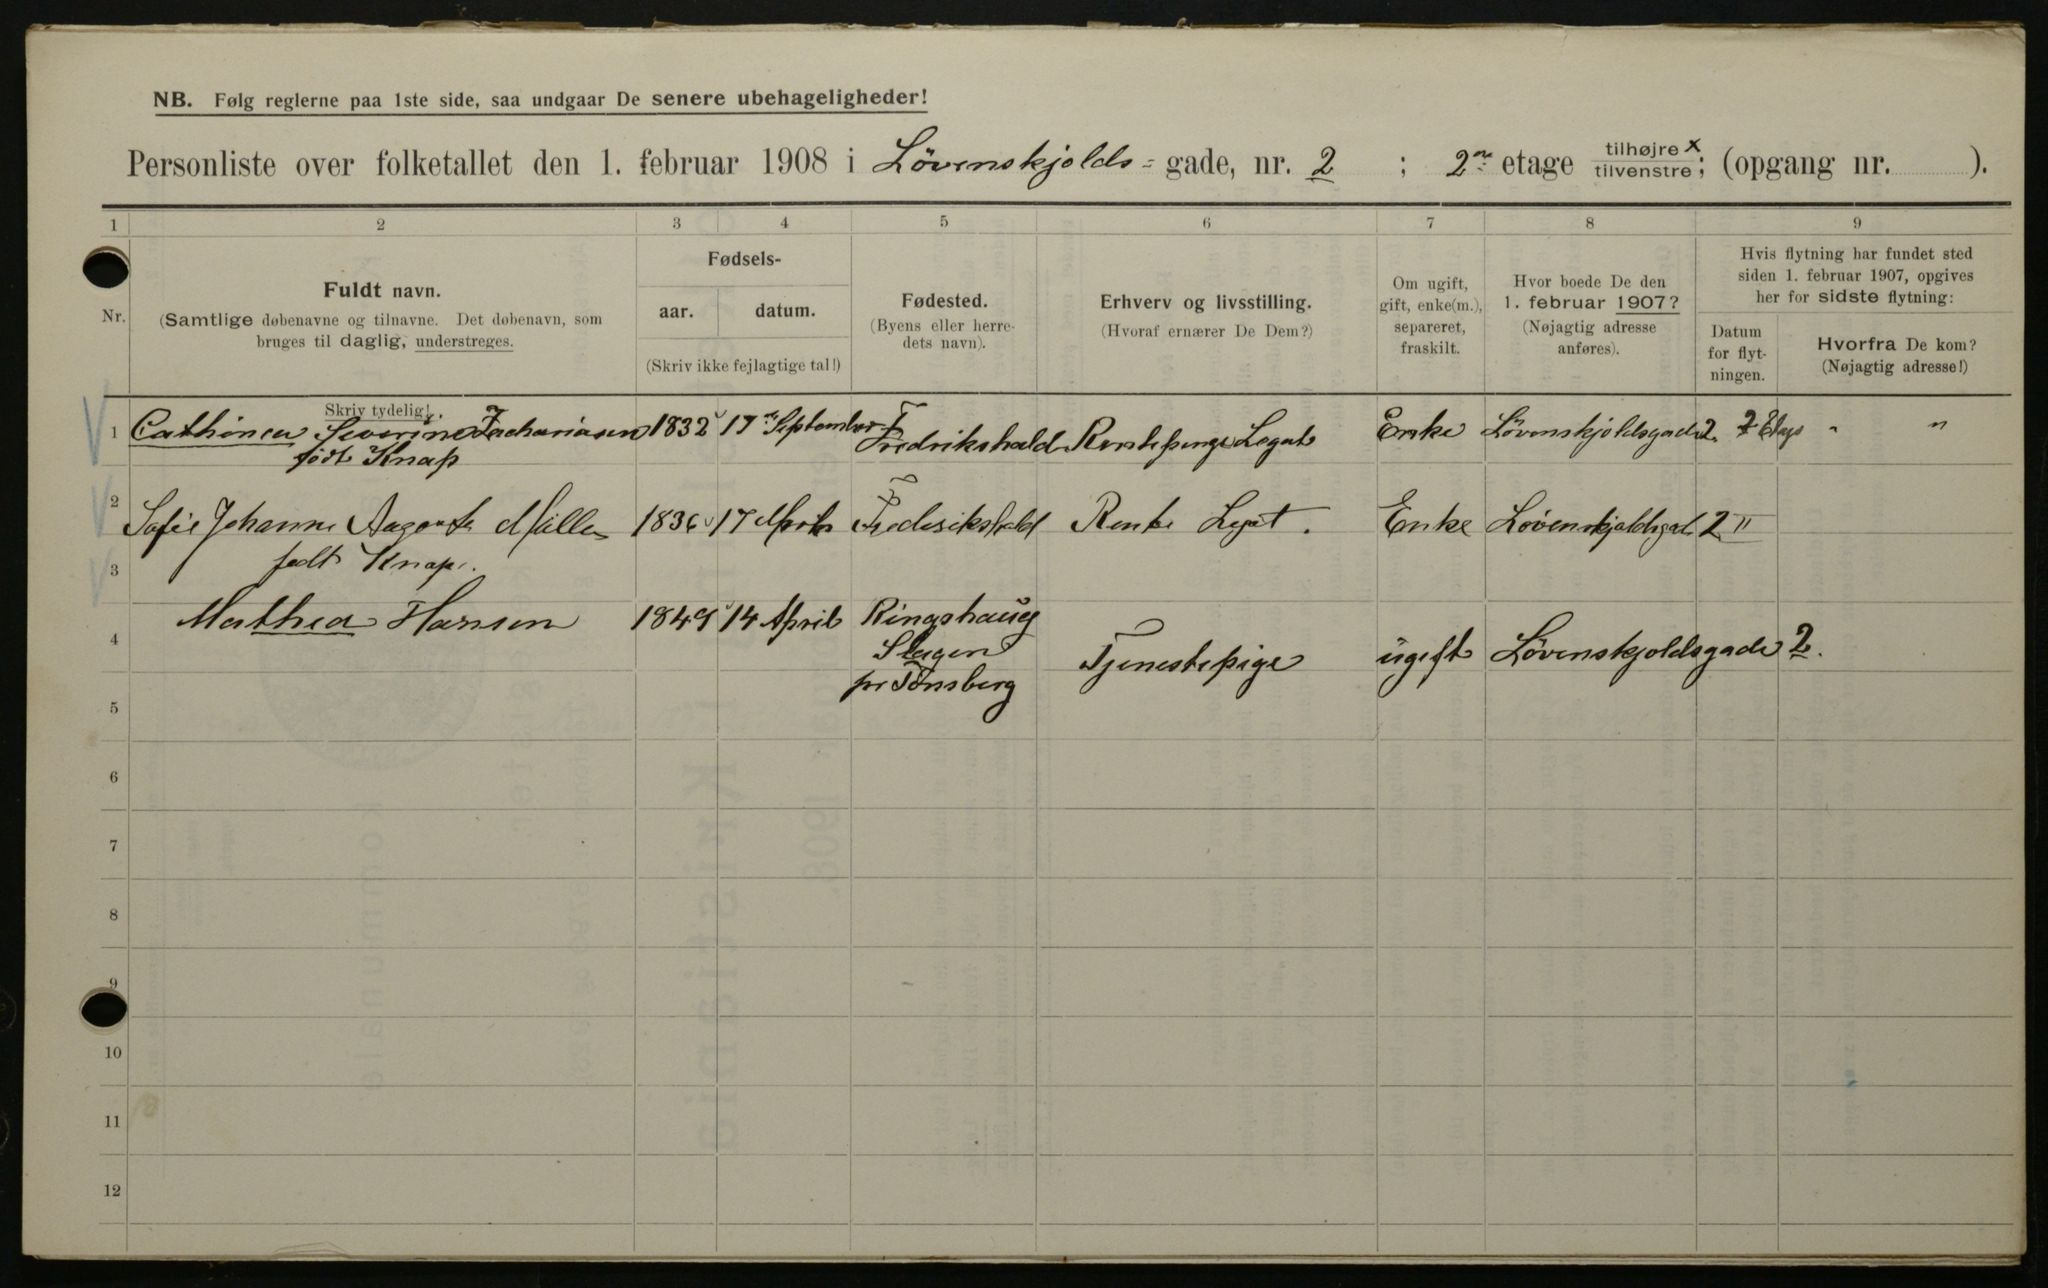 NB. Følg reglerne paa 1ste side, saa undgaar De senere ubehageligheder!
Personliste over folketallet den 1. februar 1908 i Lövenskjolds= gade, nr. 2 ; 2den etage tilhøjre x / tilvenstre; (opgang nr. ).
1 2 3 4 5 6 7 8 9
Nr.
Fuldt navn.
(Samtlige døbenavne og tilnavne. Det døbenavn, som
bruges til daglig, understreges.
Fødsels-
aar. datum.
(Skriv ikke fejlagtige tal!)
Fødested.
(Byens eller herre-
dets navn).
Erhverv og livsstilling.
(Hvoraf ernærer De Dem?)
Om ugift,
gift, enke(m.),
separeret,
fraskilt.
Hvor boede De den
1. februar 1907?
(Nøjagtig adresse
anføres).
Hvis flytning har fundet sted
siden 1. februar 1907, opgives
her for sidste flytning:
Datum
for flyt-
ningen.
Hvorfra De kom?
(Nøjagtig adresse!)
Skriv tydelig!
1 Cathinca Severine Zachariasen 1832 17 September Fredrikshald Rentepenge Legat Enke Lövenskjoldsgade 2. 2 Etage " "
født Knap
2 Sofie Johanne Møller 1836 17 Fredrikshald Rente Legat. Enke Lövenskjoldsgad 2 II
3 født Knap.
Mathea Hansen 1849 14 April Ringshaug
4 Slagen Tjenestepige ugift Lövenskjoldsgade 2.
pr Tönsberg
5
6
7
8
9
10
11
12